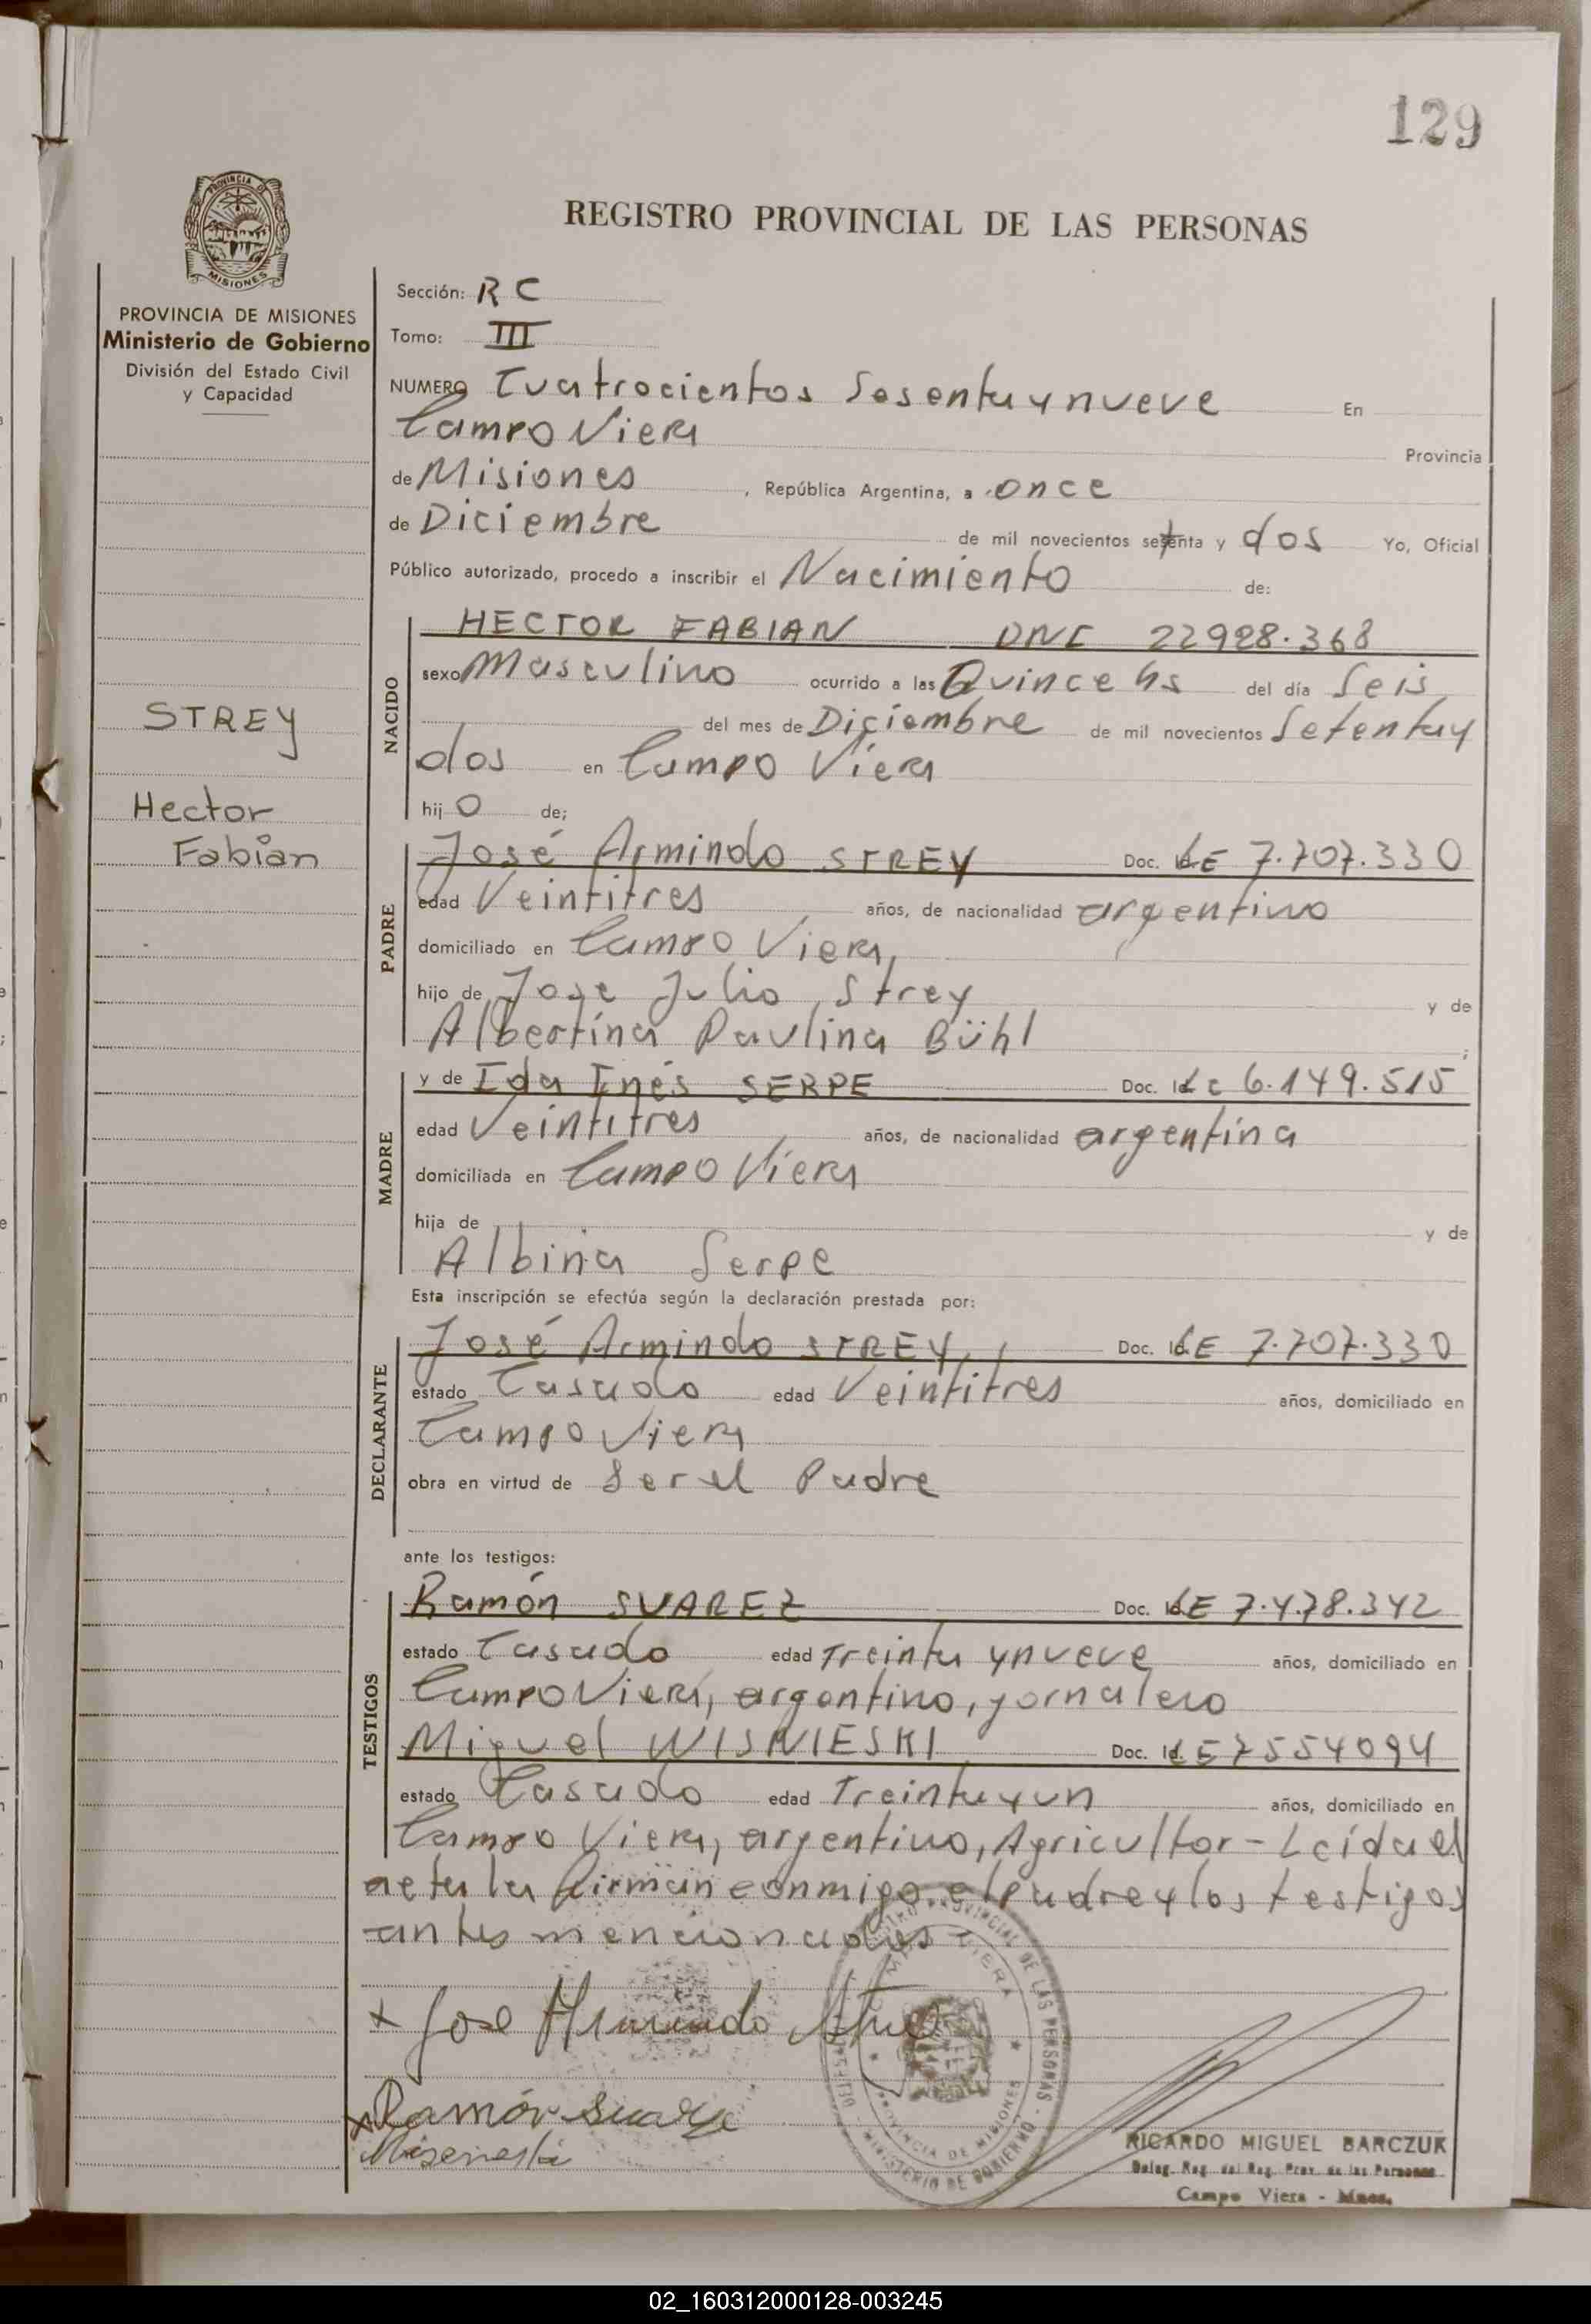 129
PROVINCIA DE
MISIONES
REGISTRO PROVINCIAL DE LAS PERSONAS
PROVINCIA DE MISIONES
Ministerio de Gobierno
División del Estado Civil
y Capacidad
STREY
Hector
Fabian
Sección: RC
Tomo: III
NUMERO Cuatrocientos Sesenta y nueve En
Campo Viera Provincia
de Misiones, República Argentina, a once
de Diciembre de mil novecientos setenta y dos Yo, Oficial
Público autorizado, procedo a inscribir el Nacimiento de:
NACIDO
HECTOR FABIAN DNI 22928.368
sexo Masculino ocurrido a las Quince hs del día Seis
del mes de Diciembre de mil novecientos Setenta y
dos en Campo Viera
hijo de;
PADRE
José Armindo STREY Doc. LE 7.707.330
edad Veintitres años, de nacionalidad argentino
domiciliado en Campo Viera,
hijo de Jose Julio Strey y de
Albertina Paulina Bühl;
MADRE
y de Ida Inés SERPE Doc. Id. LC 6.149.515
edad Veintitres años, de nacionalidad argentina
domiciliada en Campo Viera
hija de y de
Albina Serpe
Esta inscripción se efectúa según la declaración prestada por:
DECLARANTE
José Armindo STREY, Doc. Id. LE 7.707.330
estado Casado edad Veintitres años, domiciliado en
Campo Viera
obra en virtud de Ser el Padre
ante los testigos:
TESTIGOS
Ramón SUAREZ Doc. Id. LE 7.478.342
estado Casado edad Treinta y nueve años, domiciliado en
Campo Viera, argentino, jornalero
Miguel WISNIESKI Doc. Id. LE 7554094
estado Casado edad Treinta y un años, domiciliado en
Campo Viera, argentino, Agricultor - Leída el
acta la firman conmigo el padre y los testigos
antes mencionados -
x Jose Armindo Strey
x Ramón Suarez
REGISTRO PROVINCIAL DE LAS PERSONAS - MINISTERIO DE GOBIERNO
PROVINCIA DE MISIONES
RICARDO MIGUEL BARCZUK
Deleg. Reg. del Reg. Prov. de las Personas
Campo Viera - Mnes.
02_160312000128-003245